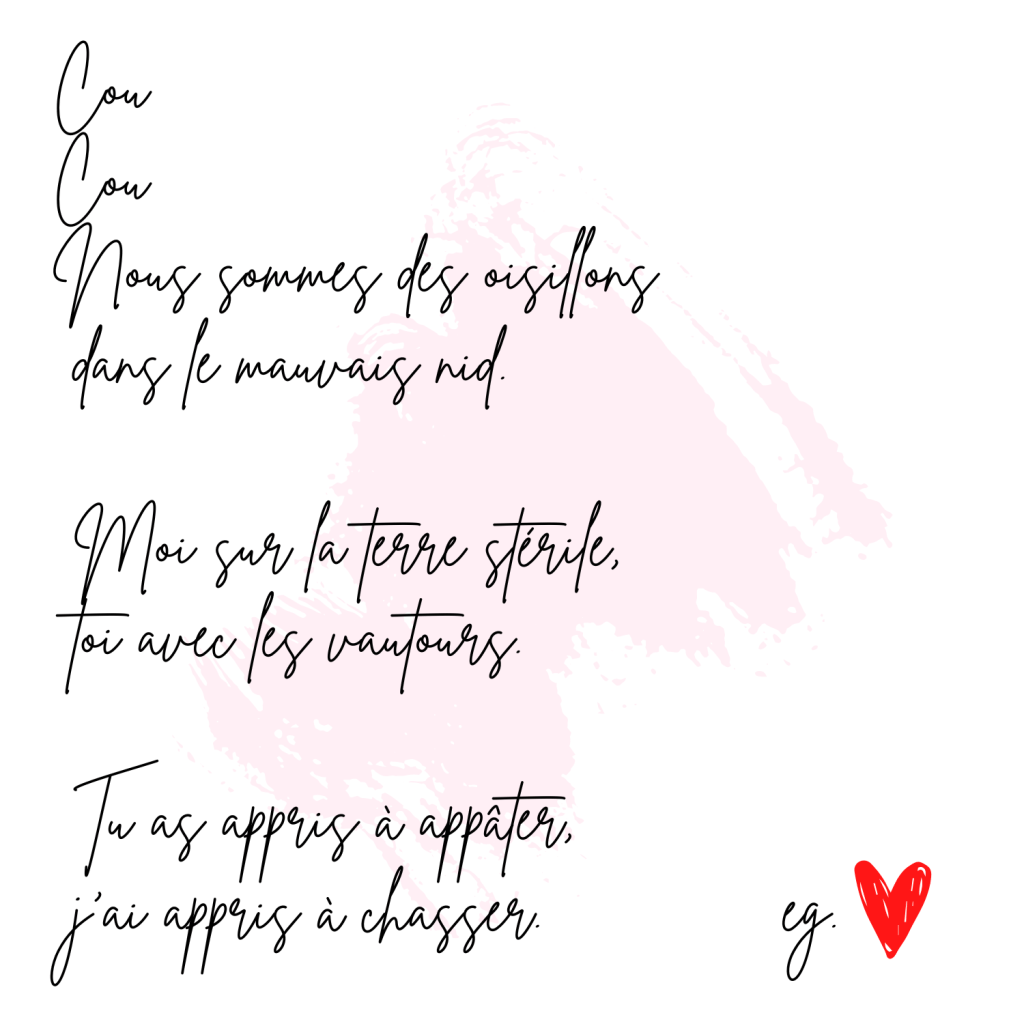 Cou
Cou
Nous sommes des oisillons
dans le mauvais nid.
Moi sur la terre stérile,
toi avec les vautours.
Tu as appris à appâter,
j'ai appris à chasser.
eg.